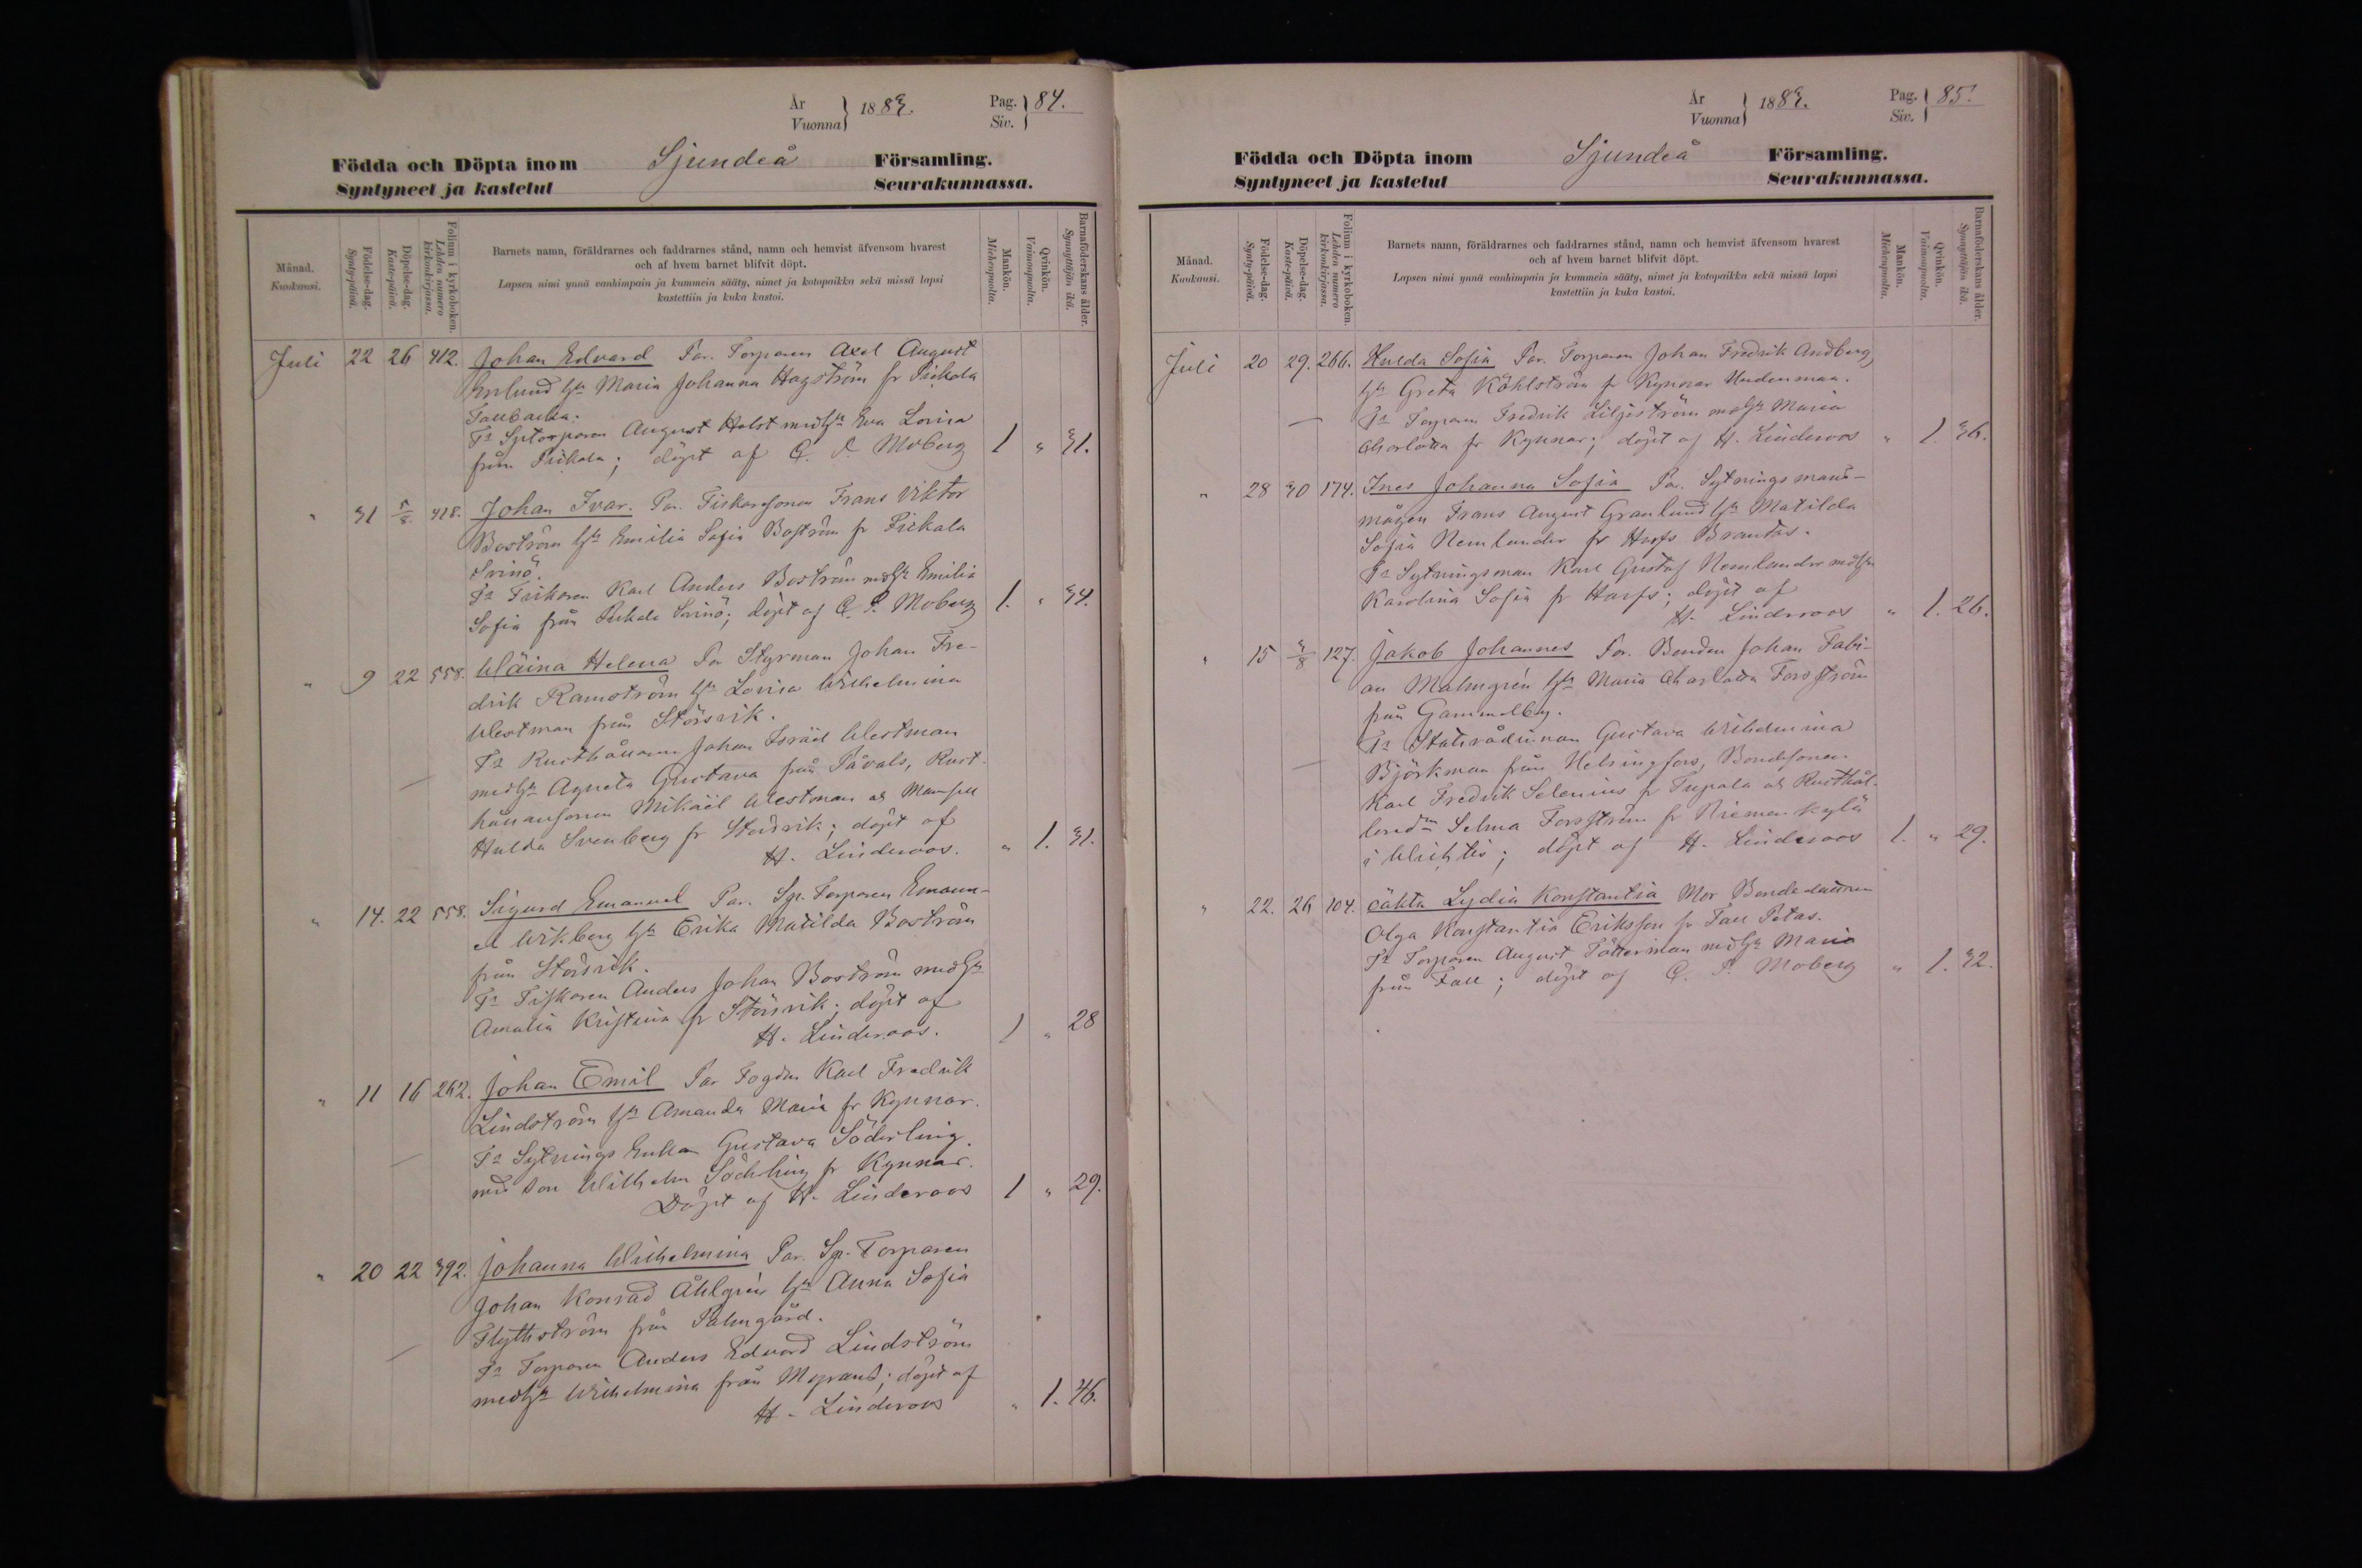 År
Vuonna } 1883.
Pag.
Siv. } 84.
Födda och Döpta inom Sjundeå Församling.
Syntyneet ja kastetut Seurakunnassa.
Månad.
Kuukausi.
Födelse-dag.
Synty-päivä.
Döpelse-dag.
Kaste-päivä.
Folium i kyrkoboken.
Lehden numero
kirkonkirjassa.
Barnets namn, föräldrarnes och faddrarnes stånd, namn och hemvist äfvensom hvarest
och af hvem barnet blifvit döpt.
Lapsen nimi ynnä vanhimpain ja kummein sääty, nimet ja kotopaikka sekä missä lapsi
kastettiin ja kuka kastoi.
Mankön.
Miehenpuolta.
Qvinkön.
Vaimonpuolta.
Barnaföderskans ålder.
Synnyttäjän ikä.
Juli 22 26 412. Johan Edvard Par. Torparen Axel August
Enlund hu Maria Johanna Hagström fr Pickala
Tallbacka.
Fr Sptorparen August Holst med hu Eva Lovisa
från Pickala; döpt af C. P. Moberg 1 " 31.
" 31 5/8. 418. Johan Ivar. Par. Fiskaresonen Frans Viktor
Boström hu Emilia Sofia Boström fr Pickala
Svinö.
Fr Fiskaren Karl Anders Boström med hu Emilia
Sofia från Pickala Svinö; döpt af C. P. Moberg 1. " 34.
" 9 22 558. Wäina Helena Par Styrman Johan Fre-
drik Ramström hu Lovisa Wilhelmina
Westman från Störsvik.
Fr Rusthållaren Johan Israël Westman
med hu Agneta Gustava från Påvals, Rust-
hållaresonen Mikaël Westman och Mamsell
Hulda Svenberg fr Störsvik; döpt af
H. Linderoos. " 1. 31.
" 14. 22 558. Sigurd Emanuel Par. Sp. Torparen Emanu-
el Wikberg hu Erika Matilda Boström
från Störsvik.
Fr Fiskaren Anders Johan Boström med hu
Amalia Kristina fr Störsvik; döpt af
H. Linderoos. 1 " 28
" 11 16 262. Johan Emil Par Fogden Karl Fredrik
Lindström hu Amanda Maria fr Kynnar.
Fr Sytnings Enkan Gustava Söderling.
med son Wilhelm Söderling fr Kynnar.
Döpt af H. Linderoos 1 " 29.
" 20 22 392. Johanna Wilhelmina Par. Sp. Torparen
Johan Konrad Åhlgrén hu Anna Sofia
Flythström från Palmgård.
Fr Torparen Anders Edvard Lindström
med hu Wilhelmina från Myrans; döpt af
H. Linderoos " 1. 46.
År
Vuonna } 1883.
Pag.
Siv. } 85.
Födda och Döpta inom Sjundeå Församling.
Syntyneet ja kastetut Seurakunnassa.
Månad.
Kuukausi.
Födelse-dag.
Synty-päivä.
Döpelse-dag.
Kaste-päivä.
Folium i kyrkoboken.
Lehden numero
kirkonkirjassa.
Barnets namn, föräldrarnes och faddrarnes stånd, namn och hemvist äfvensom hvarest
och af hvem barnet blifvit döpt.
Lapsen nimi ynnä vanhimpain ja kummein sääty, nimet ja kotopaikka sekä missä lapsi
kastettiin ja kuka kastoi.
Mankön.
Miehenpuolta.
Qvinkön.
Vaimonpuolta.
Barnaföderskans ålder.
Synnyttäjän ikä.
Juli 20 29. 266. Hulda Sofia Par. Torparen Johan Fredrik Andberg,
hu Greta Köhlström fr Kynnar Undenmaa.
Fr Torparen Fredrik Liljeström med hu Maria
Charlotta fr Kynnar; döpt af H. Linderoos " 1. 36.
" 28 30 174. Ines Johanna Sofia Par. Sytningsmans-
mågen Frans August Granlund hu Matilda
Sofia Nemlander fr Harfs Brantas.
Fr Sytningsman Karl Gustaf Nemlander med hu
Karolina Sofia fr Harfs; döpt af
H. Linderoos " 1. 26.
" 15 3/8 127. Jakob Johannes Par. Bonden Johan Fabi-
an Malmgrén hu Maria Charlotta Forsström
från Gammelby.
Fr Statsrådinnan Gustava Wilhelmina
Björkman från Helsingfors, Bondesonen
Karl Fredrik Selenius fr Tupala och Rusthål-
lared:n Selma Forsström fr Niemenkylä
i Wichtis; döpt af H. Linderoos 1. " 29.
" 22. 26 104. oäkta Lydia Konstantia Mor Bondedottren
Olga Konstantia Eriksson fr Fall Petas.
Fr Torparen August Pötterman med hu Maria
från Fall; döpt af C. P. Moberg " 1. 32.